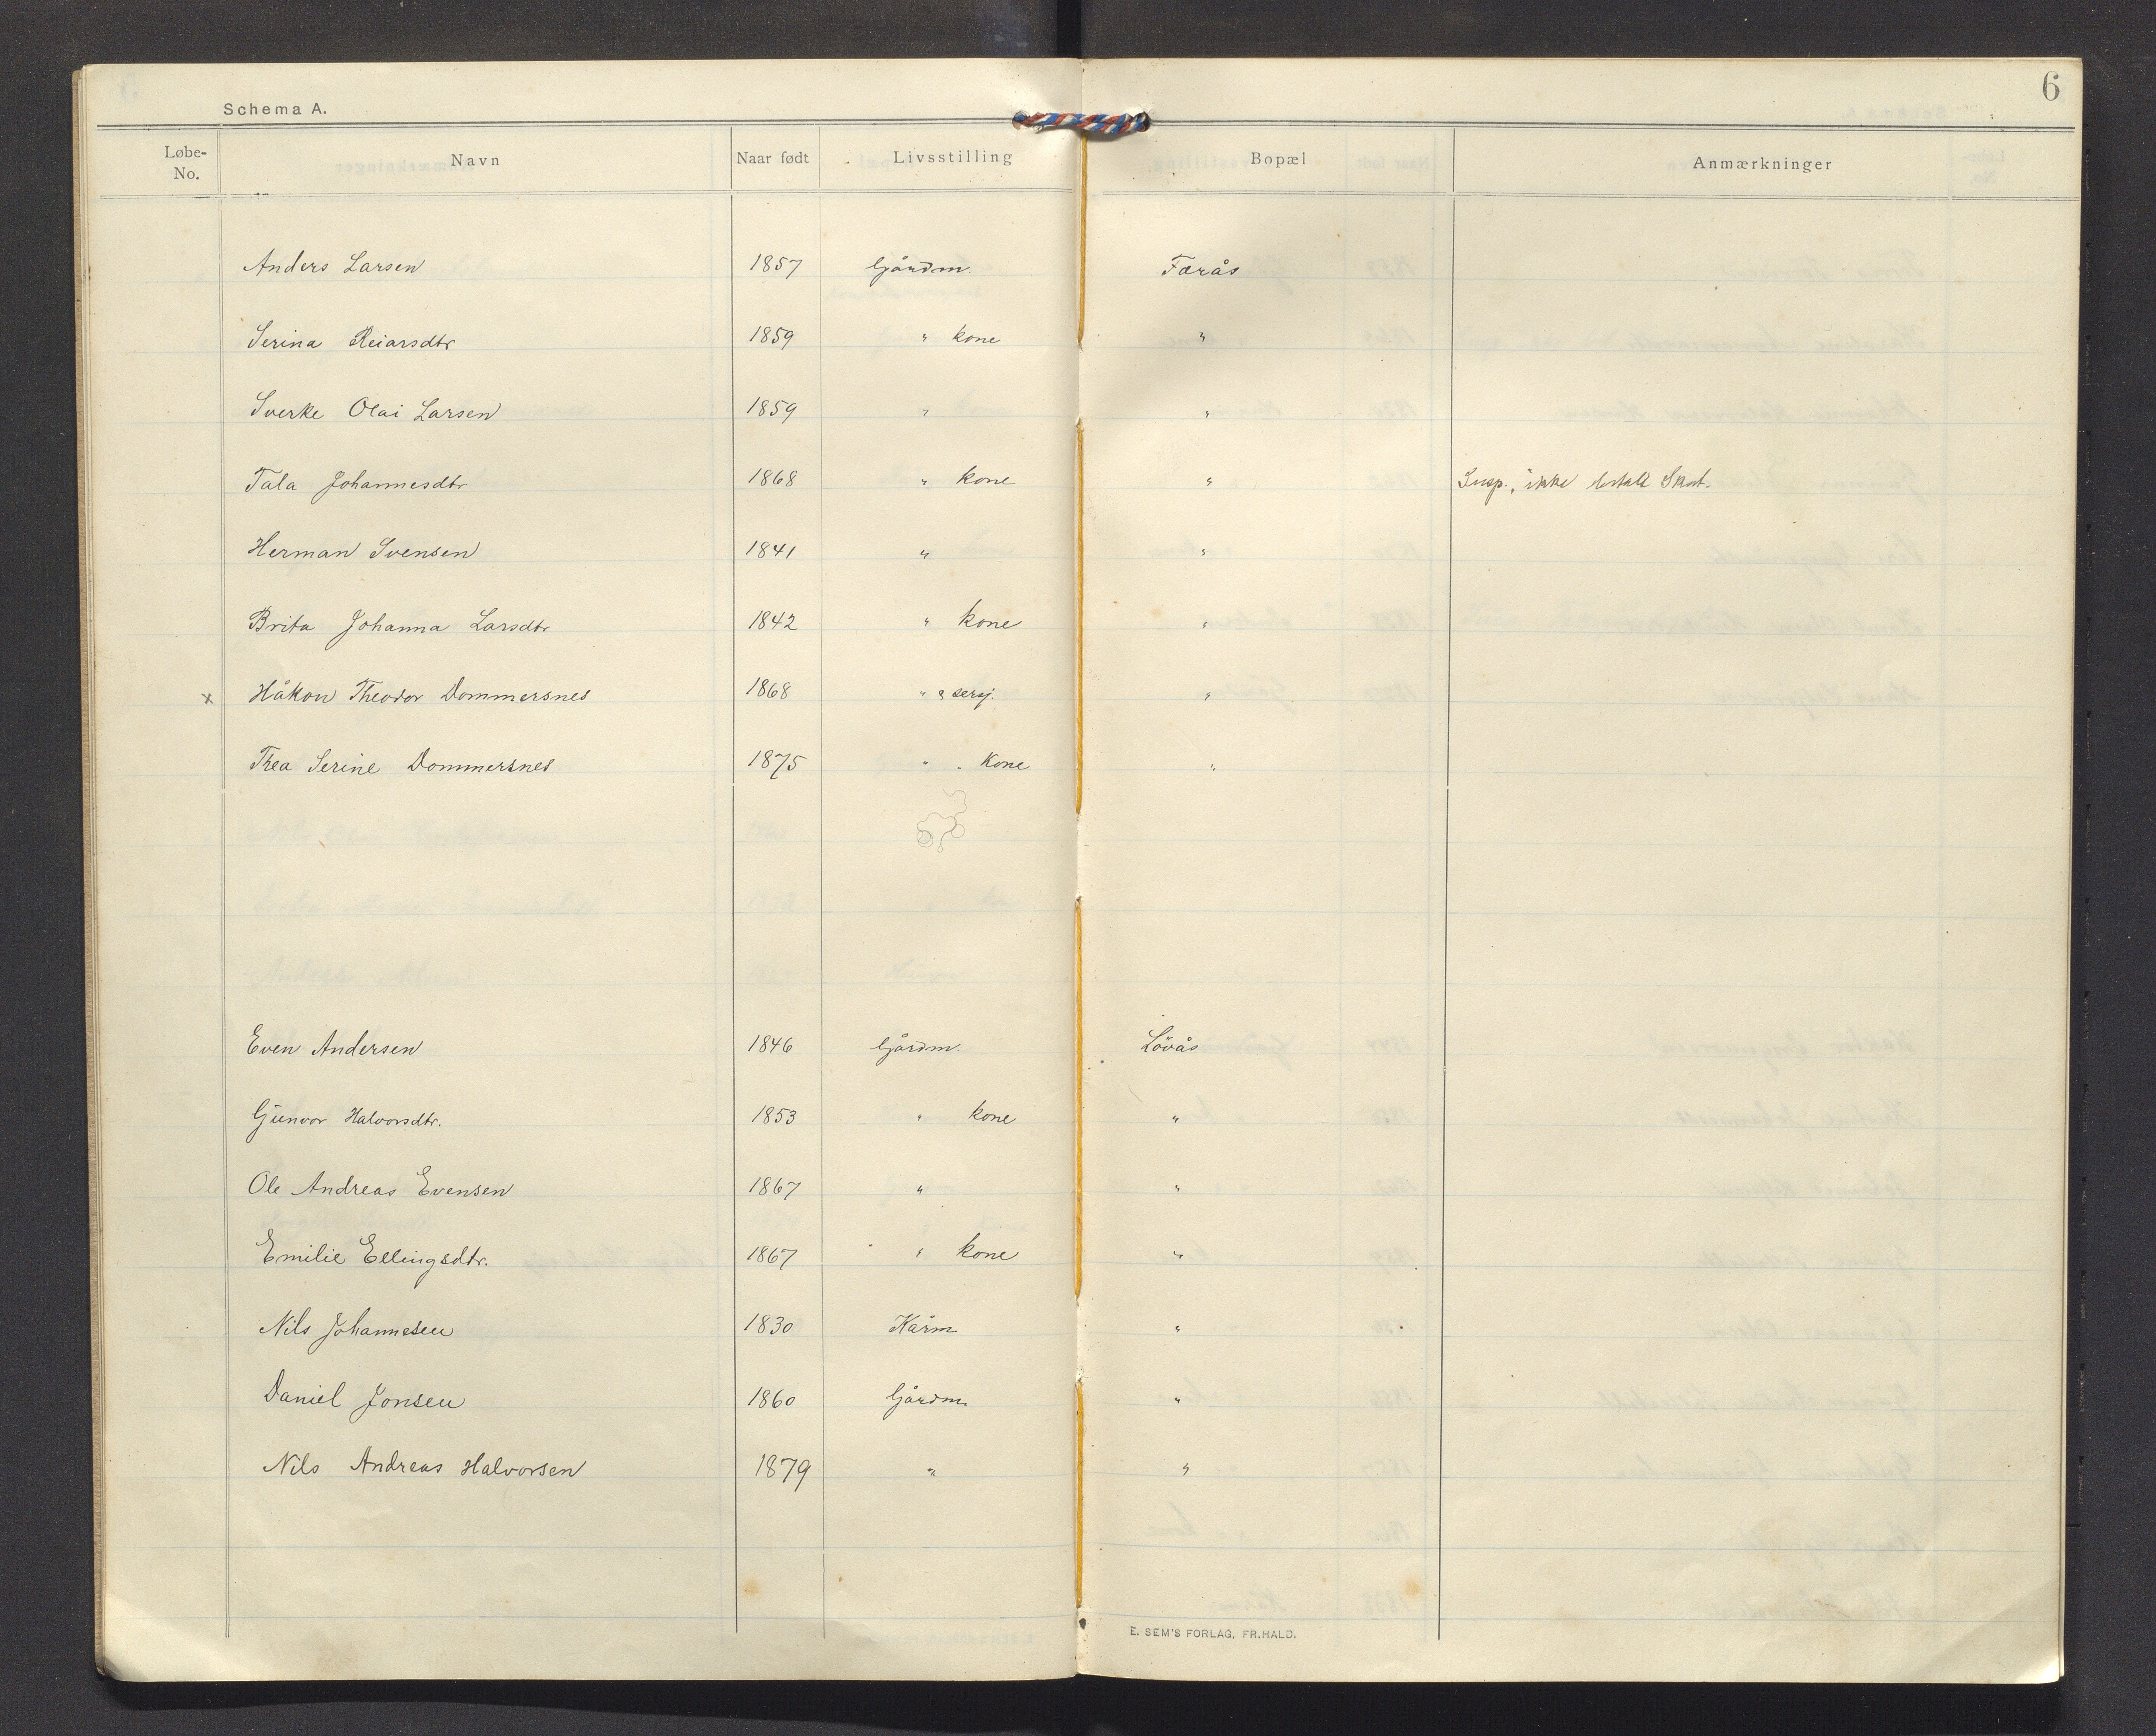 6
Schema A.
Løbe-No. Navn Naar født Livsstilling Bopæl Anmærkninger
Anders Larsen 1857 Gårdm. Færås
Serina Reiarsdtr 1859 " kone "
Sverke Olai Larsen 1859 " "
Tala Johannesdtr 1868 " kone " Susp., ikke betalt Skat.
Herman Svensen 1841 " "
Brita Johanna Larsdtr 1842 " kone "
x Håkon Theodor Dommersnes 1868 " & sersj. "
Thea Serine Dommersnes 1875 " " kone "
Even Andersen 1846 Gårdm. Lövås
Gunvor Halvorsdtr. 1853 " kone "
Ole Andreas Evensen 1867 " "
Emilie Ellingsdtr. 1867 " kone "
Nils Johannesen 1830 Kårm. "
Daniel Jonsen 1860 Gårdm. "
Nils Andreas Halvorsen 1879 " "
E. SEM'S FORLAG, FR.HALD.